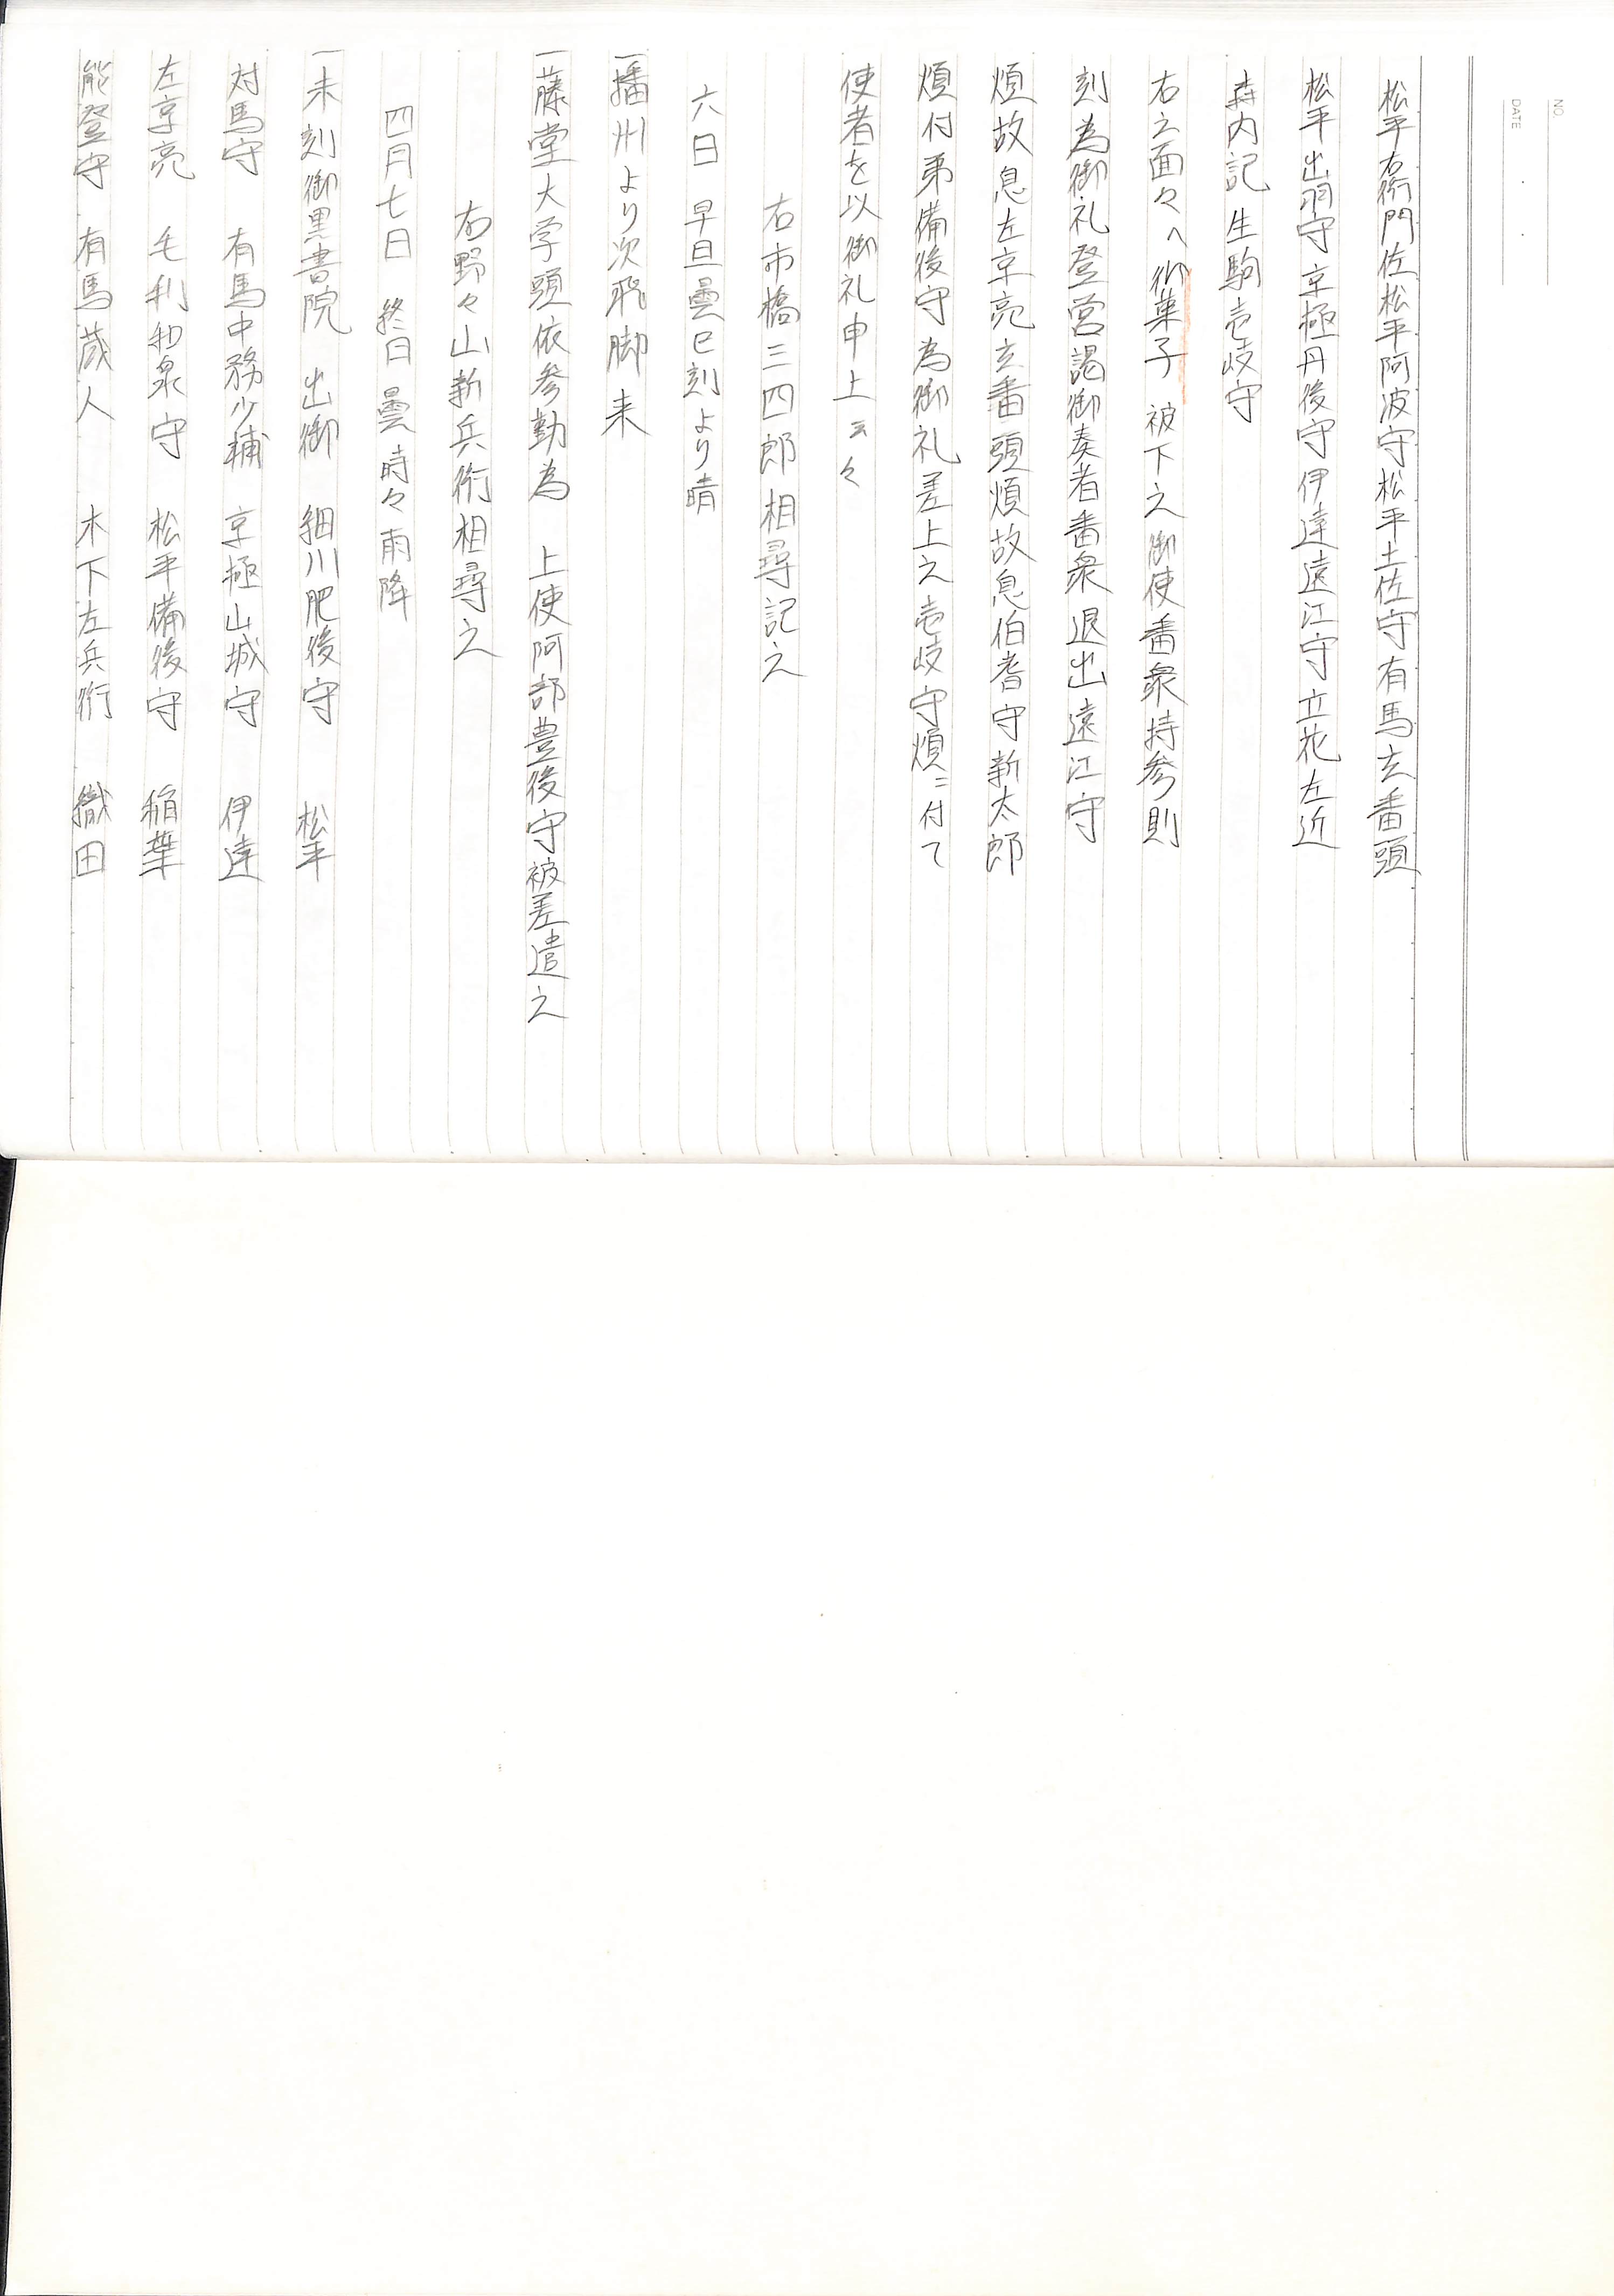 NO.
DATE
松平右衛門佐松平阿波守松平土佐守有馬玄蕃頭
松平出羽守京極丹後守伊達遠江守立花左近
森内記生駒壱岐守
右之面々へ御菓子被下之御使番衆持参則
刻為御礼登営謁御奏者番衆退出遠江守
煩故息左京亮玄蕃頭煩故息伯耆守新太郎
煩付弟備後守為御礼差上之壱岐守煩ニ付て
使者を以御礼申上云々
右市橋三四郎相尋記之
六日 早旦曇巳刻より晴
一播州より次飛脚来
一藤堂大学頭依参勤為 上使阿部豊後守被差遣之
右野々山新兵衛相尋之
四月七日 終日曇時々雨降
一未刻御黒書院 出御 細川肥後守 松平
対馬守 有馬中務少輔 京極山城守 伊達
左京亮 毛利和泉守 松平備後守 稲葉
能登守 有馬蔵人 木下左兵衛 織田